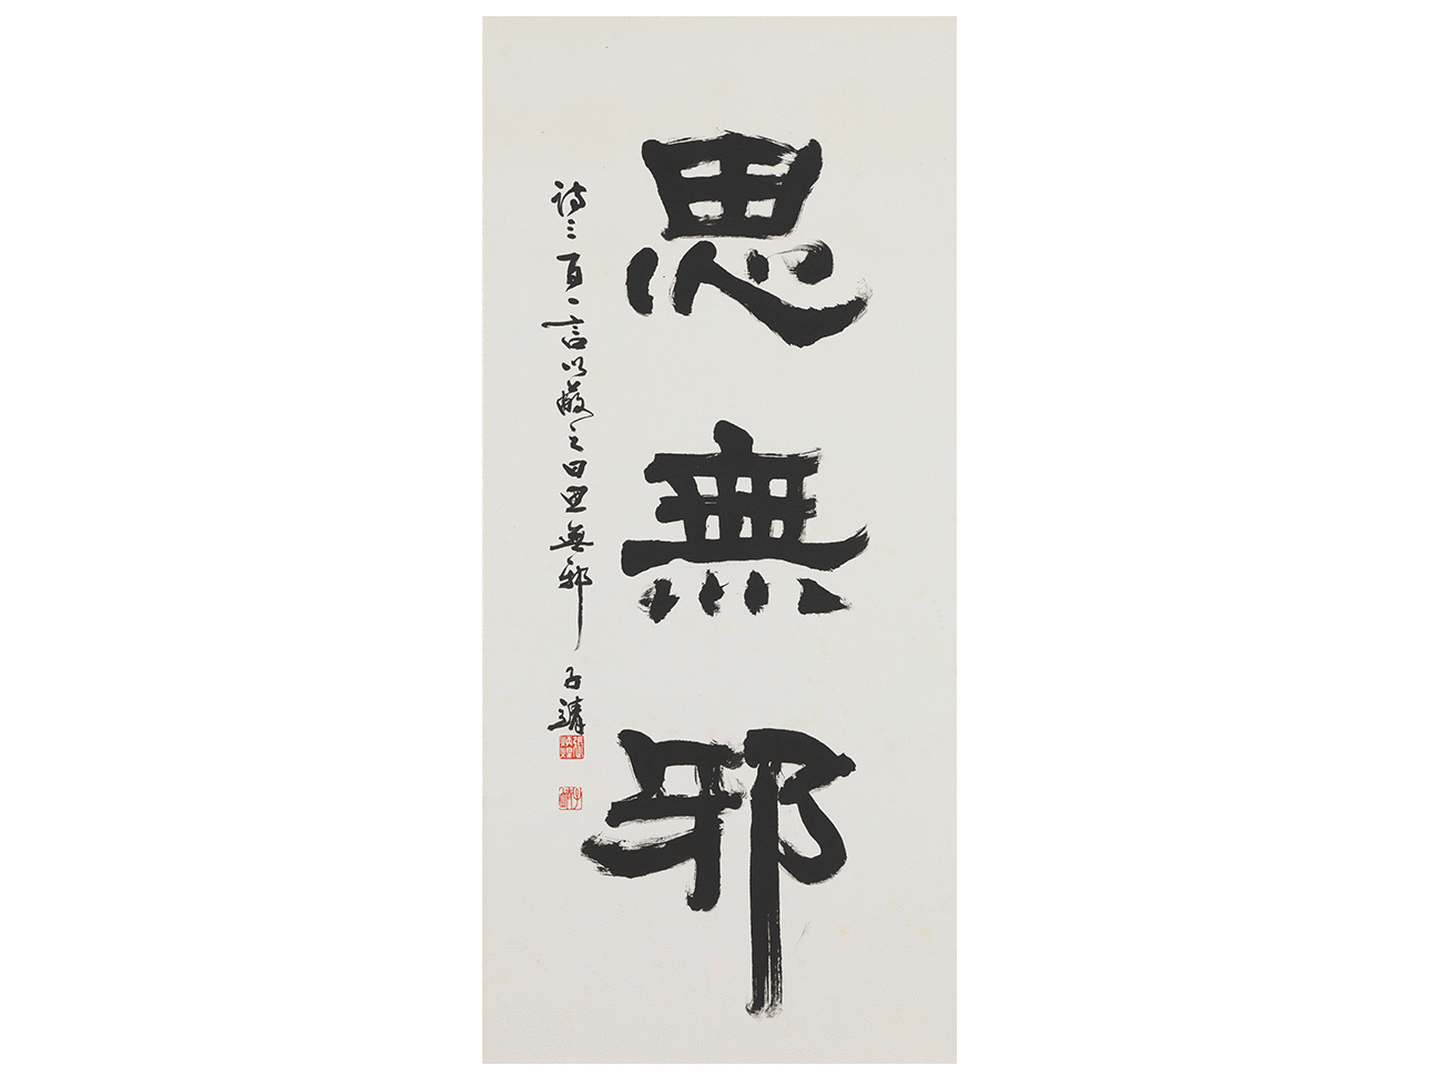 思無邪
詩三百一言以蔽之曰思無邪
子靖